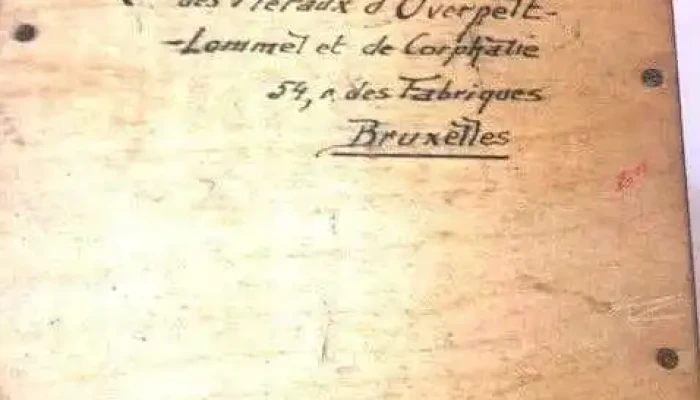 des Métaux d'Overpelt-
-Lommel et de Corphalie
54, r. des Fabriques
Bruxelles